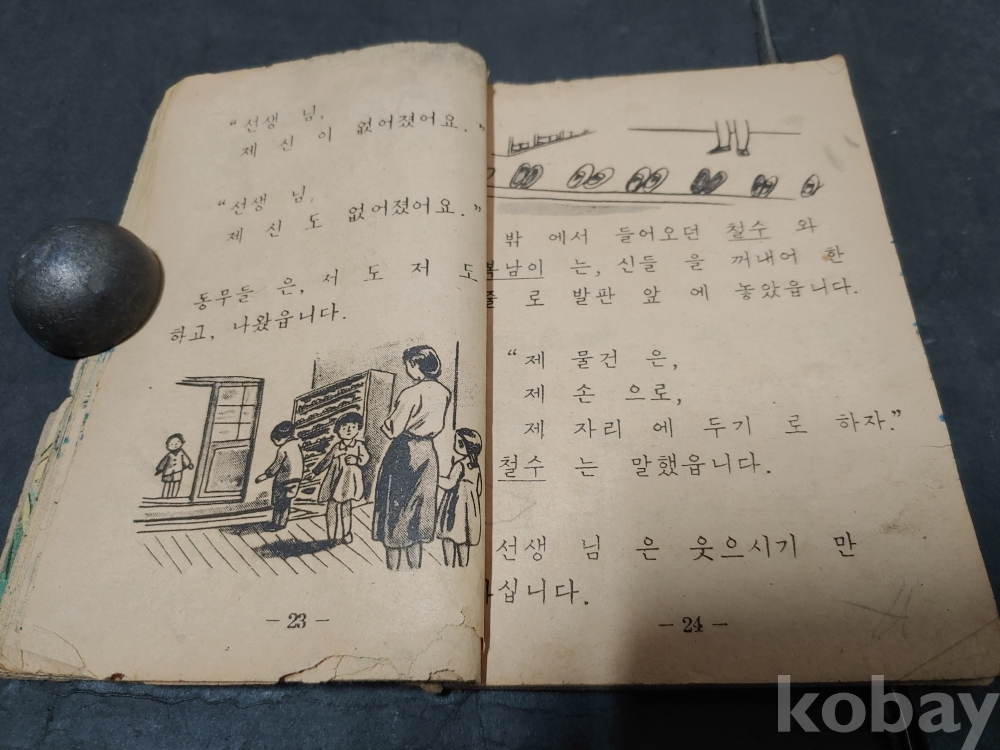 “선생 님,
제 신 이 없어졌어요.”
“선생 님,
제 신 도 없어졌어요.”
동무들 은, 서 도 저 도
하고, 나왔읍니다.
- 23 -
밖 에서 들어오던 철수 와
복남이 는, 신들 을 꺼내어 한
줄 로 발판 앞 에 놓았읍니다.
“제 물건 은,
제 손 으로,
제 자리 에 두기 로 하자.”
철수 는 말했읍니다.
선생 님 은 웃으시기 만
하십니다.
- 24 -
kobay